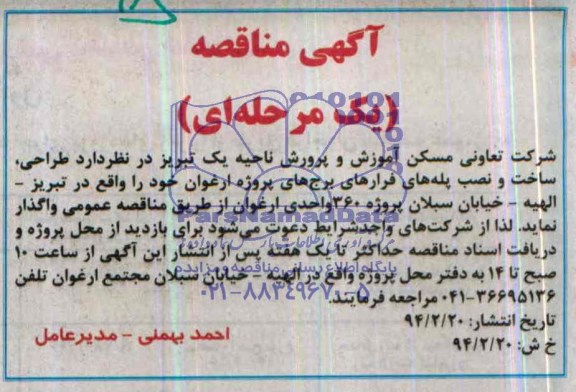 آگهی مناقصه
(یک مرحله‌ای)
شرکت تعاونی مسکن آموزش و پرورش ناحیه یک تبریز در نظردارد طراحی،
ساخت و نصب پله‌های فرارهای برج‌های پروژه ارغوان خود را واقع در تبریز -
الهیه - خیابان سبلان پروژه ۳۶۰واحدی ارغوان از طریق مناقصه عمومی واگذار
نماید. لذا از شرکت‌های واجدشرایط دعوت می‌شود برای بازدید از محل پروژه و
دریافت اسناد مناقصه حداکثر تا یک هفته پس از انتشار این آگهی از ساعت ۱۰
صبح تا ۱۴ به دفتر محل پروژه واقع در الهیه - خیابان سبلان مجتمع ارغوان تلفن
۰۴۱-۳۶۶۹۵۱۳۶ مراجعه فرمایند.
تاریخ انتشار: ۹۴/۲/۲۰
خ ش: ۹۴/۲/۲۰
احمد بهمنی - مدیرعامل
ParsNamadData
پایگاه اطلاع رسانی مناقصه و مزایده
۰۲۱-۸۸۳۴۹۶۷۰-۵